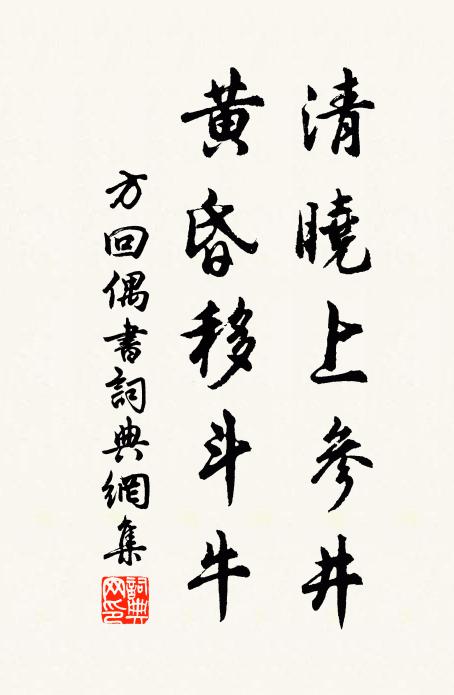 清曉上參井
黃昏移斗牛
方回偶書詞典網集
詞典網印